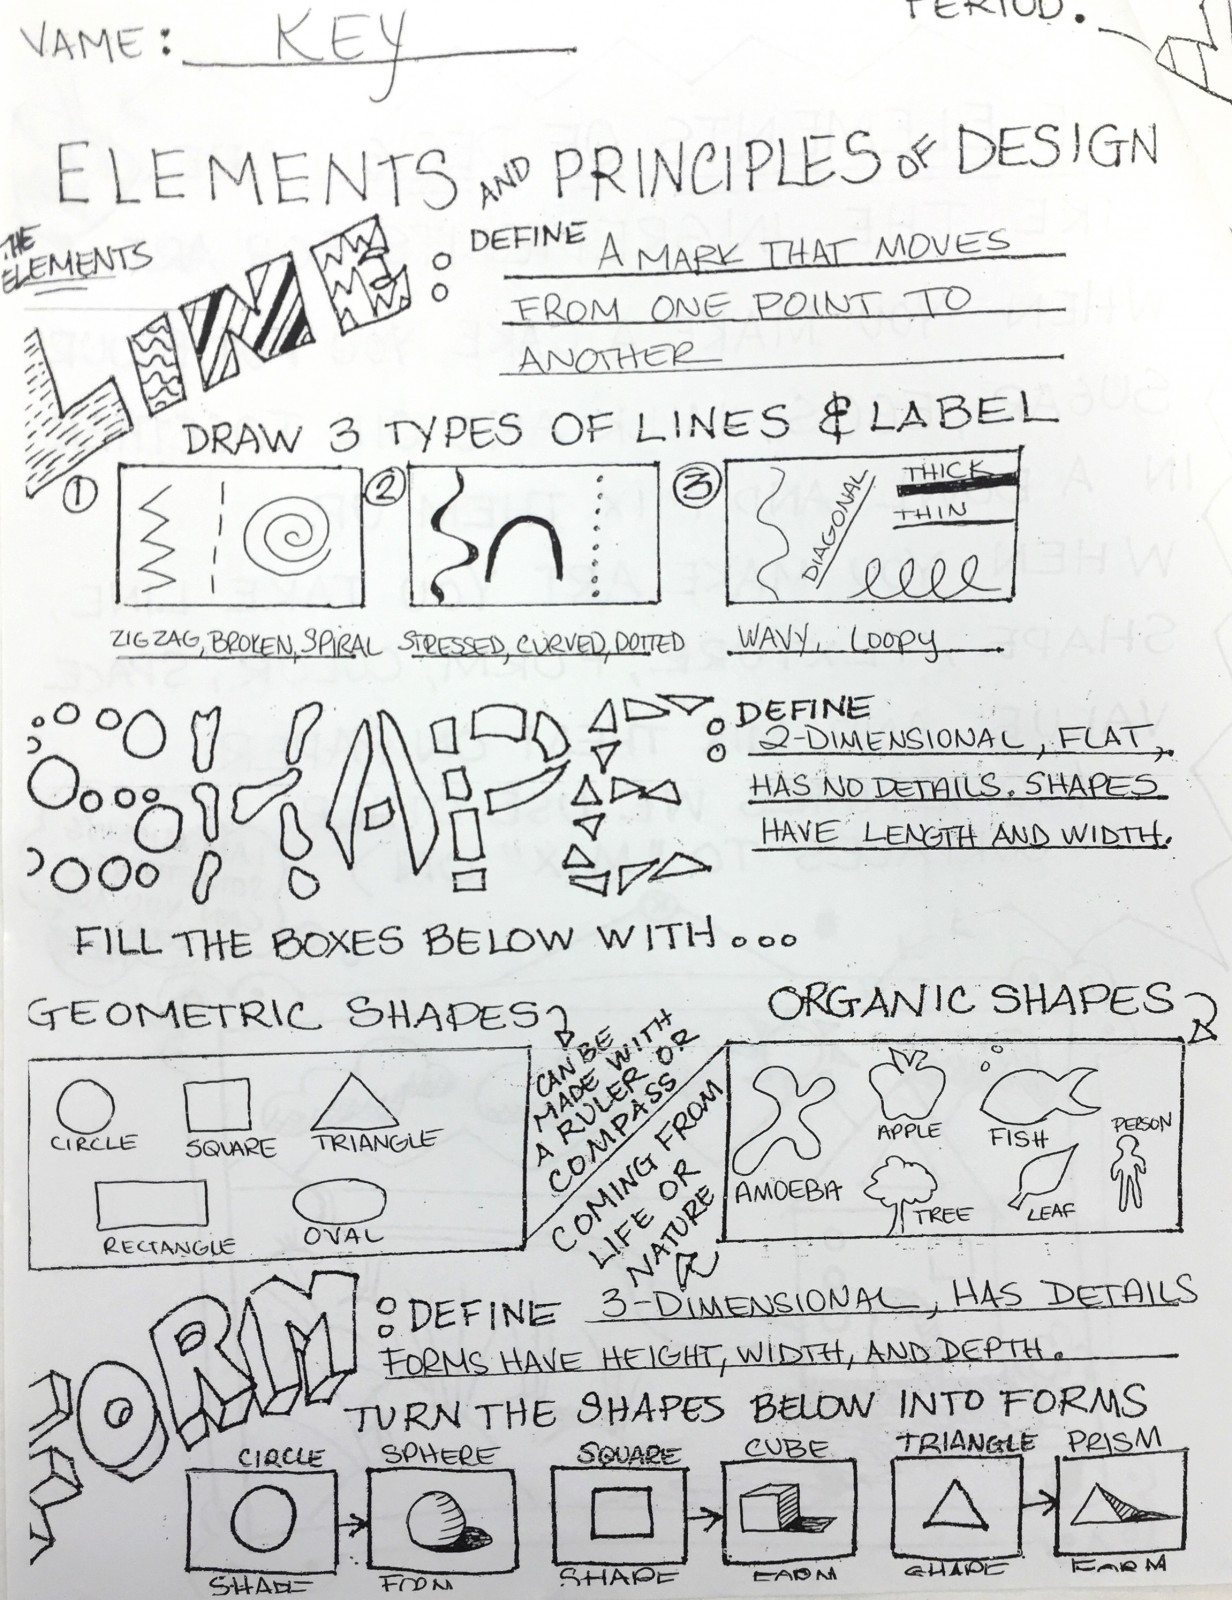 NAME: KEY
PERIOD:
ELEMENTS AND PRINCIPLES OF DESIGN
THE ELEMENTS
LINE: DEFINE A MARK THAT MOVES
FROM ONE POINT TO
ANOTHER
DRAW 3 TYPES OF LINES & LABEL
1 2 3
DIAGONAL
THICK
THIN
ZIGZAG, BROKEN, SPIRAL STRESSED, CURVED, DOTTED WAVY, LOOPY
SHAPE: DEFINE
2-DIMENSIONAL, FLAT,
HAS NO DETAILS. SHAPES
HAVE LENGTH AND WIDTH.
FILL THE BOXES BELOW WITH...
GEOMETRIC SHAPES
CIRCLE SQUARE TRIANGLE
RECTANGLE OVAL
CAN BE
MADE WITH
A RULER OR
COMPASS
COMING FROM
LIFE OR
NATURE
ORGANIC SHAPES
APPLE FISH PERSON
AMOEBA TREE LEAF
FORM: DEFINE 3-DIMENSIONAL, HAS DETAILS
FORMS HAVE HEIGHT, WIDTH, AND DEPTH.
TURN THE SHAPES BELOW INTO FORMS
CIRCLE SPHERE SQUARE CUBE TRIANGLE PRISM
SHAPE FORM SHAPE FORM SHAPE FORM